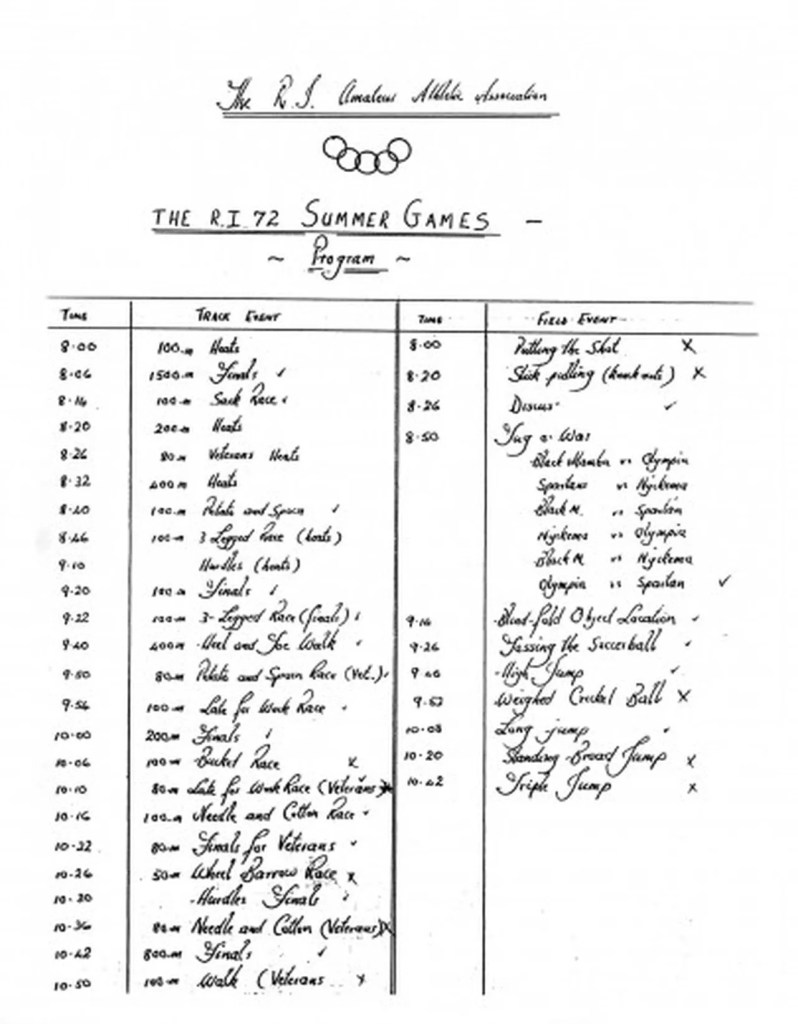 The R.I. Amateur Athletic Association
THE R.I. 72 SUMMER GAMES -
~ Program ~
TIME TRACK EVENT
8.00 100.m Heats
8.06 1500m Finals ✓
8.14 100m Sack Race ✓
8.20 200m Heats
8.26 80m Veterans Heats
8.32 400m Heats
8.40 100m Potato and Spoon ✓
8.46 100m 3 Legged Race (heats)
9.10 Hurdles (heats)
9.20 100m Finals ✓
9.22 100m 3-Legged Race (finals) ✓
9.40 400m Heel and Toe Walk ✓
9.50 80m Potato and Spoon Race (Vet.) ✓
9.56 100m Late for Work Race ✓
10.00 200m Finals ✓
10.06 100m Bucket Race X
10.10 80m Late for Work Race (Veterans) X
10.16 100m Needle and Cotton Race ✓
10.22 80m Finals for Veterans ✓
10.26 50m Wheel Barrow Race X
10.30 Hurdles Finals ✓
10.36 80m Needle and Cotton (Veterans) X
10.42 800m Finals ✓
10.50 100m Walk (Veterans X
TIME FIELD EVENT
8.00 Putting the Shot X
8.20 Stick pulling (knock outs) X
8.26 Discus ✓
8.50 Tug o. War
Black Mamba vs Olympia
Spartans vs Nyekema
Black M. vs Spartan
Nyekema vs Olympia
Black M. vs Nyekema
Olympia vs Spartan ✓
9.16 Blind-fold Object Location ✓
9.26 Tossing the Soccerball ✓
9.40 High Jump ✓
9.52 Weighed Cricket Ball X
10.08 Long jump ✓
10.20 Standing Broad Jump X
10.42 Triple Jump X